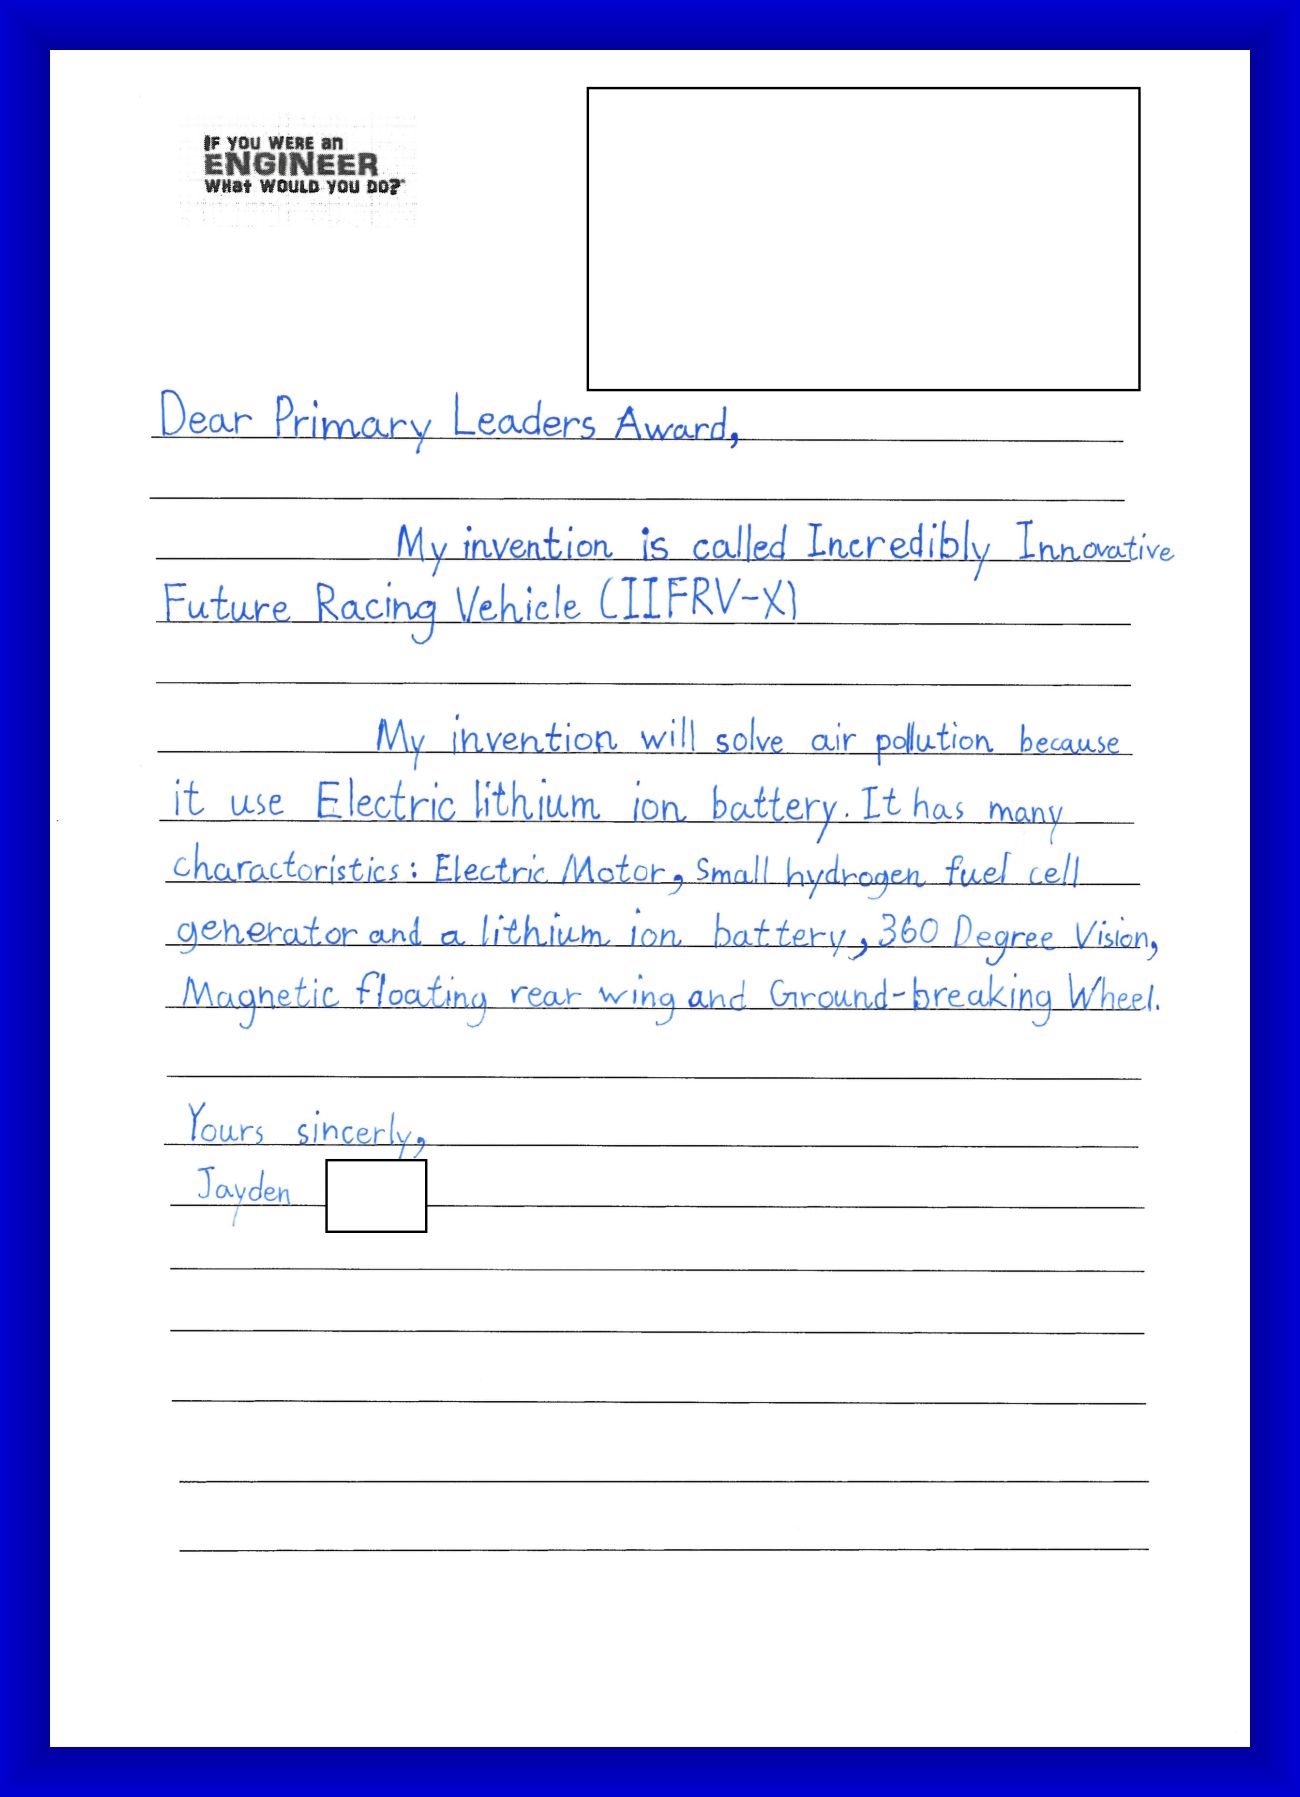 IF YOU WERE an
ENGINEER
WHat WOULD YOU DO?
Dear Primary Leaders Award,
My invention is called Incredibly Innovative
Future Racing Vehicle (IIFRV-X)
My invention will solve air pollution because
it use Electric lithium ion battery. It has many
charactoristics: Electric Motor, Small hydrogen fuel cell
generator and a lithium ion battery, 360 Degree Vision,
Magnetic floating rear wing and Ground-breaking Wheel.
Yours sincerly,
Jayden